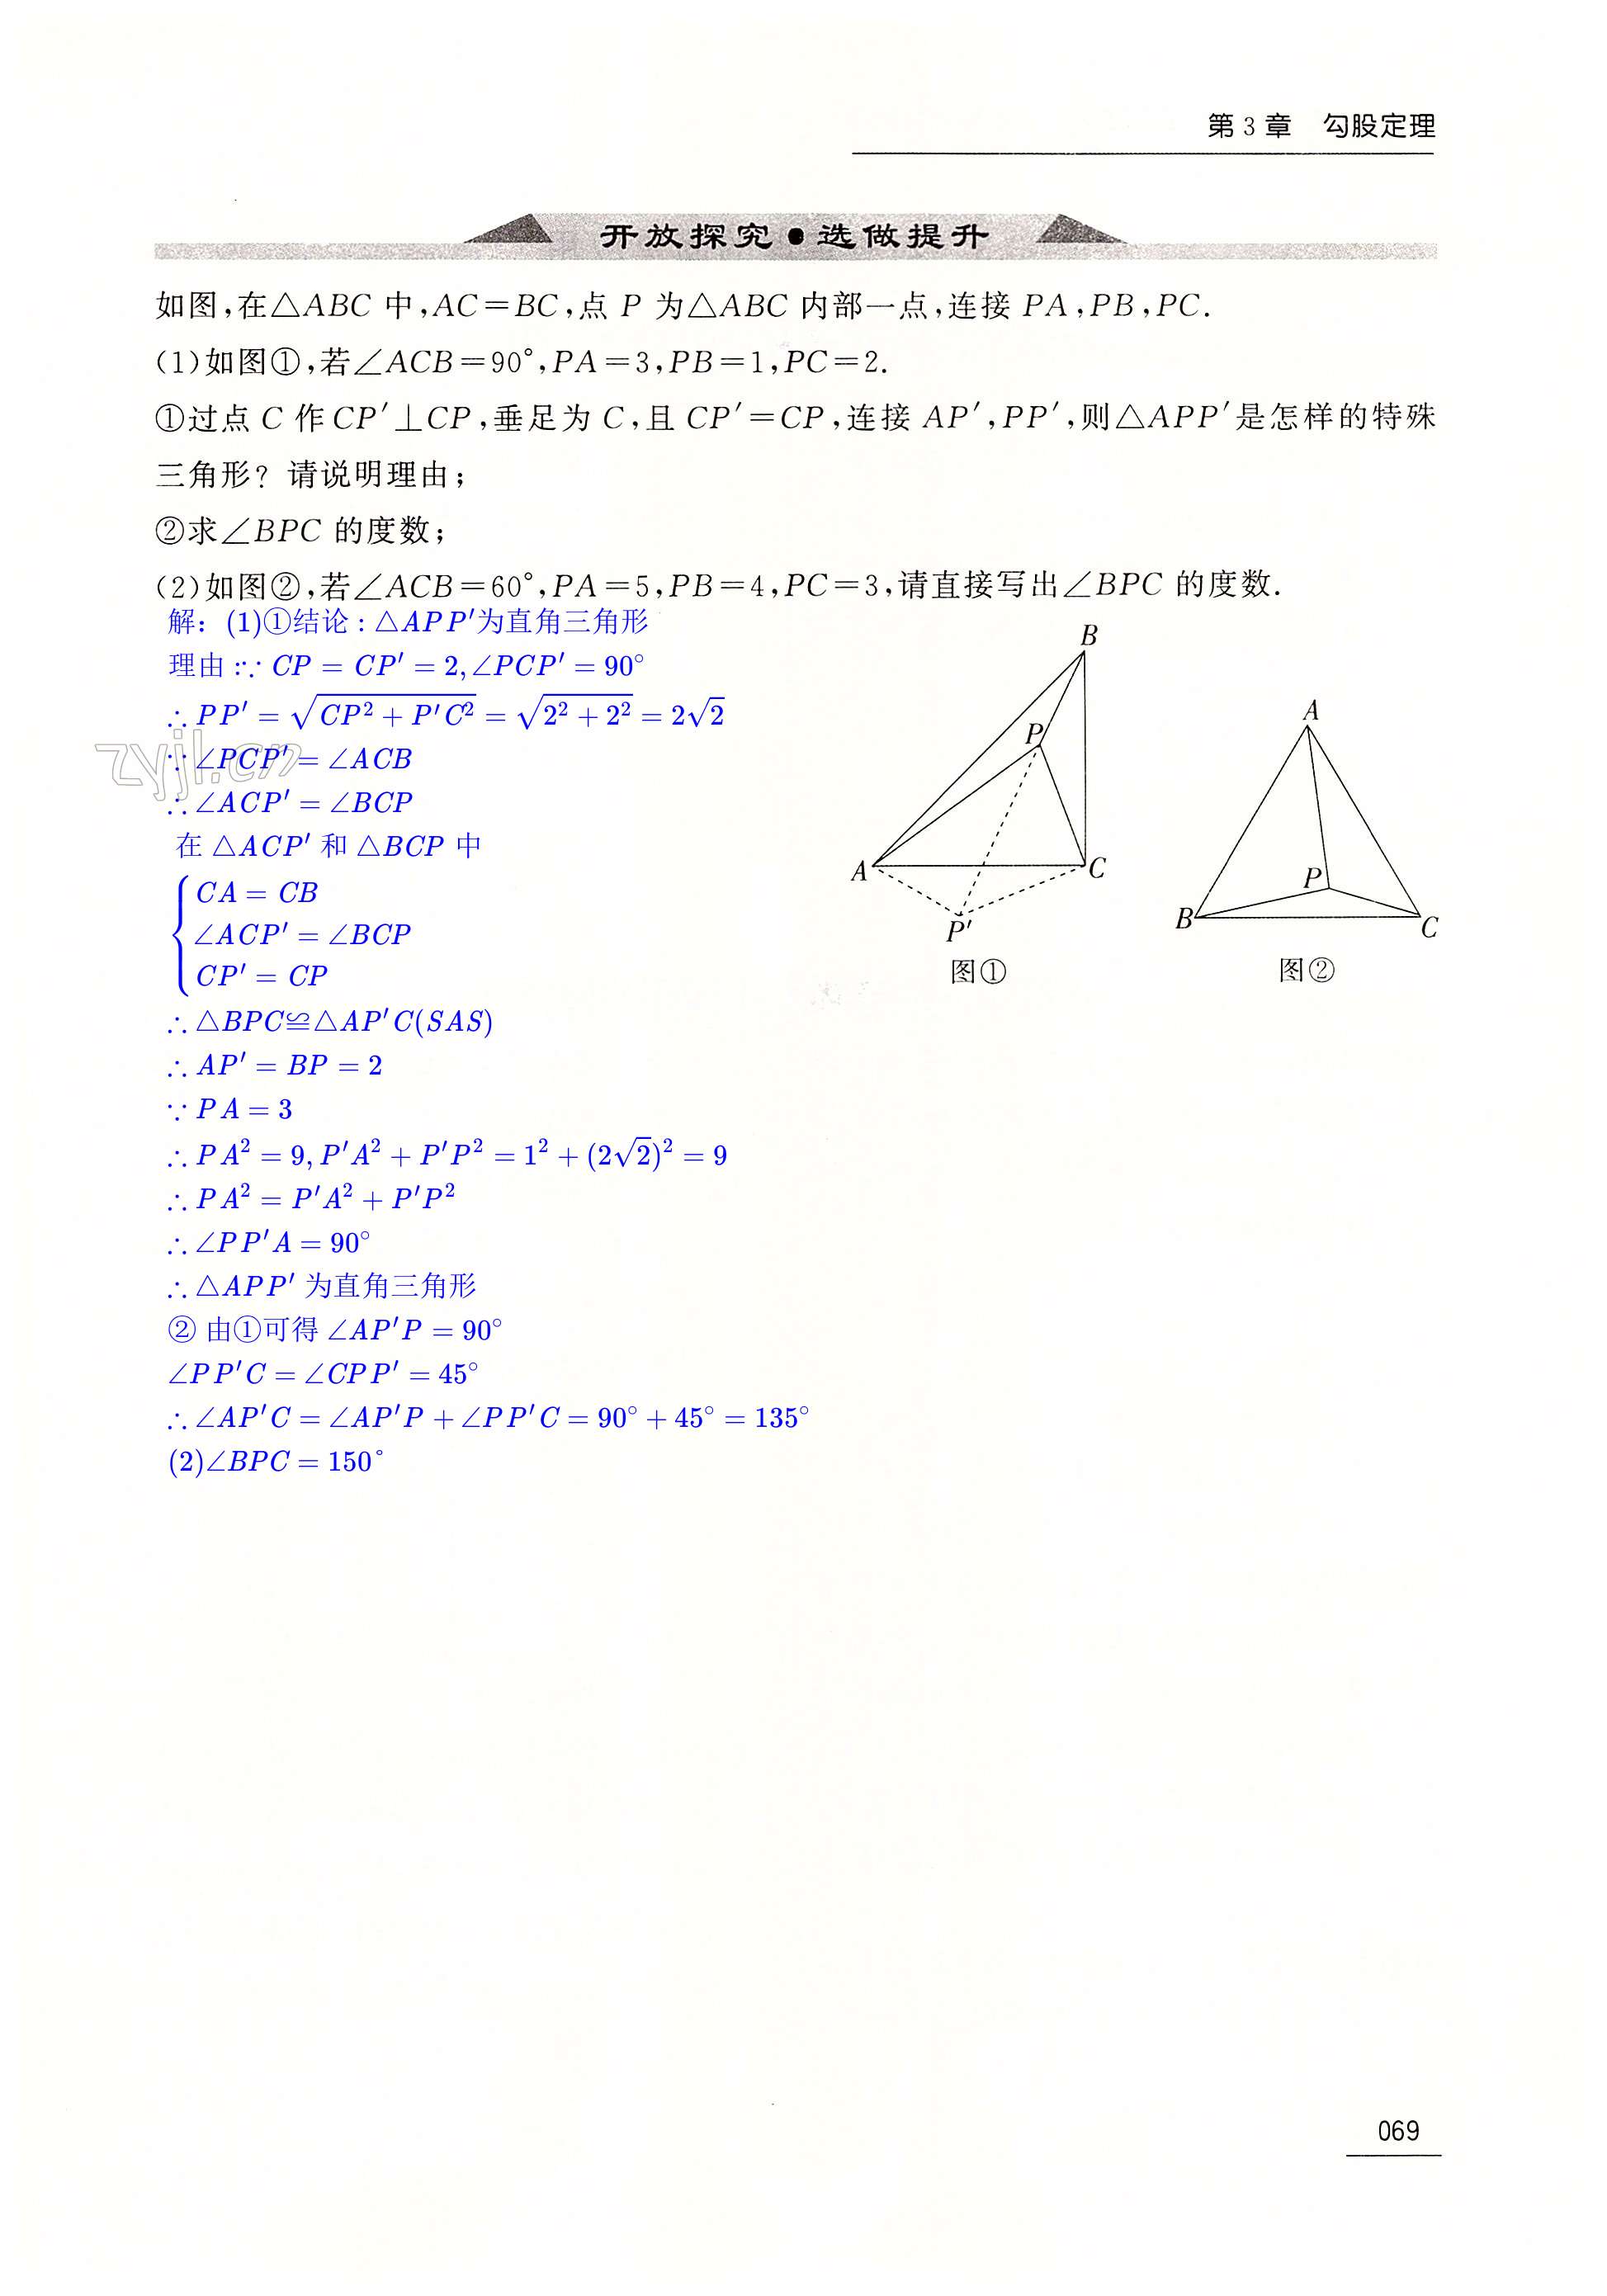 第 3 章　勾股定理
开放探究●选做提升
如图,在△ABC 中,AC=BC,点 P 为△ABC 内部一点,连接 PA,PB,PC.
(1)如图①,若∠ACB=90°,PA=3,PB=1,PC=2.
①过点 C 作 CP′⊥CP,垂足为 C,且 CP′=CP,连接 AP′,PP′,则△APP′是怎样的特殊
三角形? 请说明理由;
②求∠BPC 的度数;
(2)如图②,若∠ACB=60°,PA=5,PB=4,PC=3,请直接写出∠BPC 的度数.
解: (1)①结论 : △APP′为直角三角形
理由 :∵ CP = CP′ = 2,∠PCP′ = 90°
∴ PP′ = √(CP² + P′C²) = √(2² + 2²) = 2√2
∵ ∠PCP′ = ∠ACB
∴ ∠ACP′ = ∠BCP
在 △ACP′ 和 △BCP 中
CA = CB
∠ACP′ = ∠BCP
CP′ = CP
∴ △BPC≌△AP′C(SAS)
∴ AP′ = BP = 2
∵ PA = 3
∴ PA² = 9, P′A² + P′P² = 1² + (2√2)² = 9
∴ PA² = P′A² + P′P²
∴ ∠PP′A = 90°
∴ △APP′ 为直角三角形
② 由①可得 ∠AP′P = 90°
∠PP′C = ∠CPP′ = 45°
∴ ∠AP′C = ∠AP′P + ∠PP′C = 90° + 45° = 135°
(2)∠BPC = 150°
zyjl.cn
B
P
A
C
P′
图①
A
P
B
C
图②
069